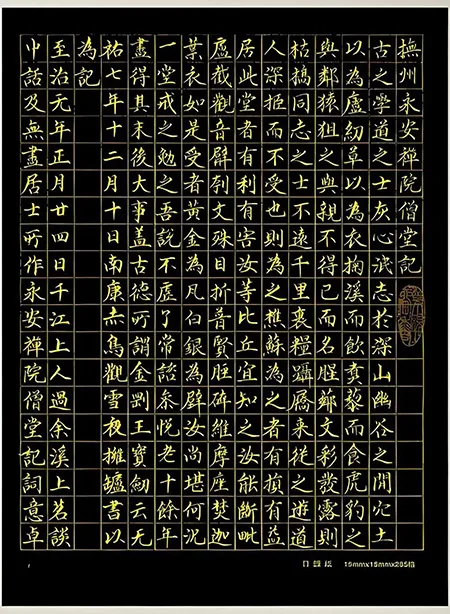 撫州永安禪院僧堂記
古之學道之士灰心泯志於深山幽谷之間穴土
以為廬紉草以為衣掬溪而飲煑藜而食虎豹之
與鄰猿狙之與親不得已而名腥薌文彩發露則
枯槁同志之士不遠千里裹糧躡屩来從之遊道
人深拒而不受也則為之樵蘇為之者有損有益
居此堂者有利有害汝等比丘宜知之汝能斷毗
盧截觀音臂刳文殊目折普賢脛碎維摩座焚迦
葉衣如是受者黃金為凡白銀為壁汝尚堪何況
一堂戒之勉之吾說不虛了常諮參悅老十餘年
盡得其末後大事蓋古德所謂金剛王寶劍云元
祐七年十二月十日南康赤烏觀雪夜擁罏書以
為記
至治元年正月廿四日千江上人過余溪上茗談
中話及無盡居士所作永安禪院僧堂記詞意卓
15mmx15mmx285格